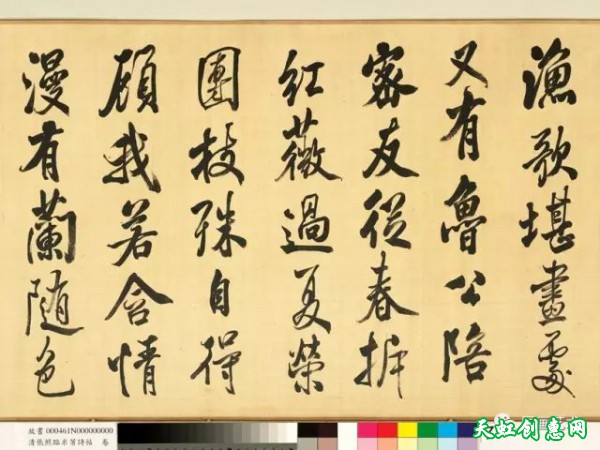 漁歌堪畫處
又有魯公陪
密友從春拆
紅薇過夏榮
團枝殊自得
顧我若含情
漫有蘭随色
故書 000461N000000000
清張照臨米芾詩帖 卷
天虹创惠网